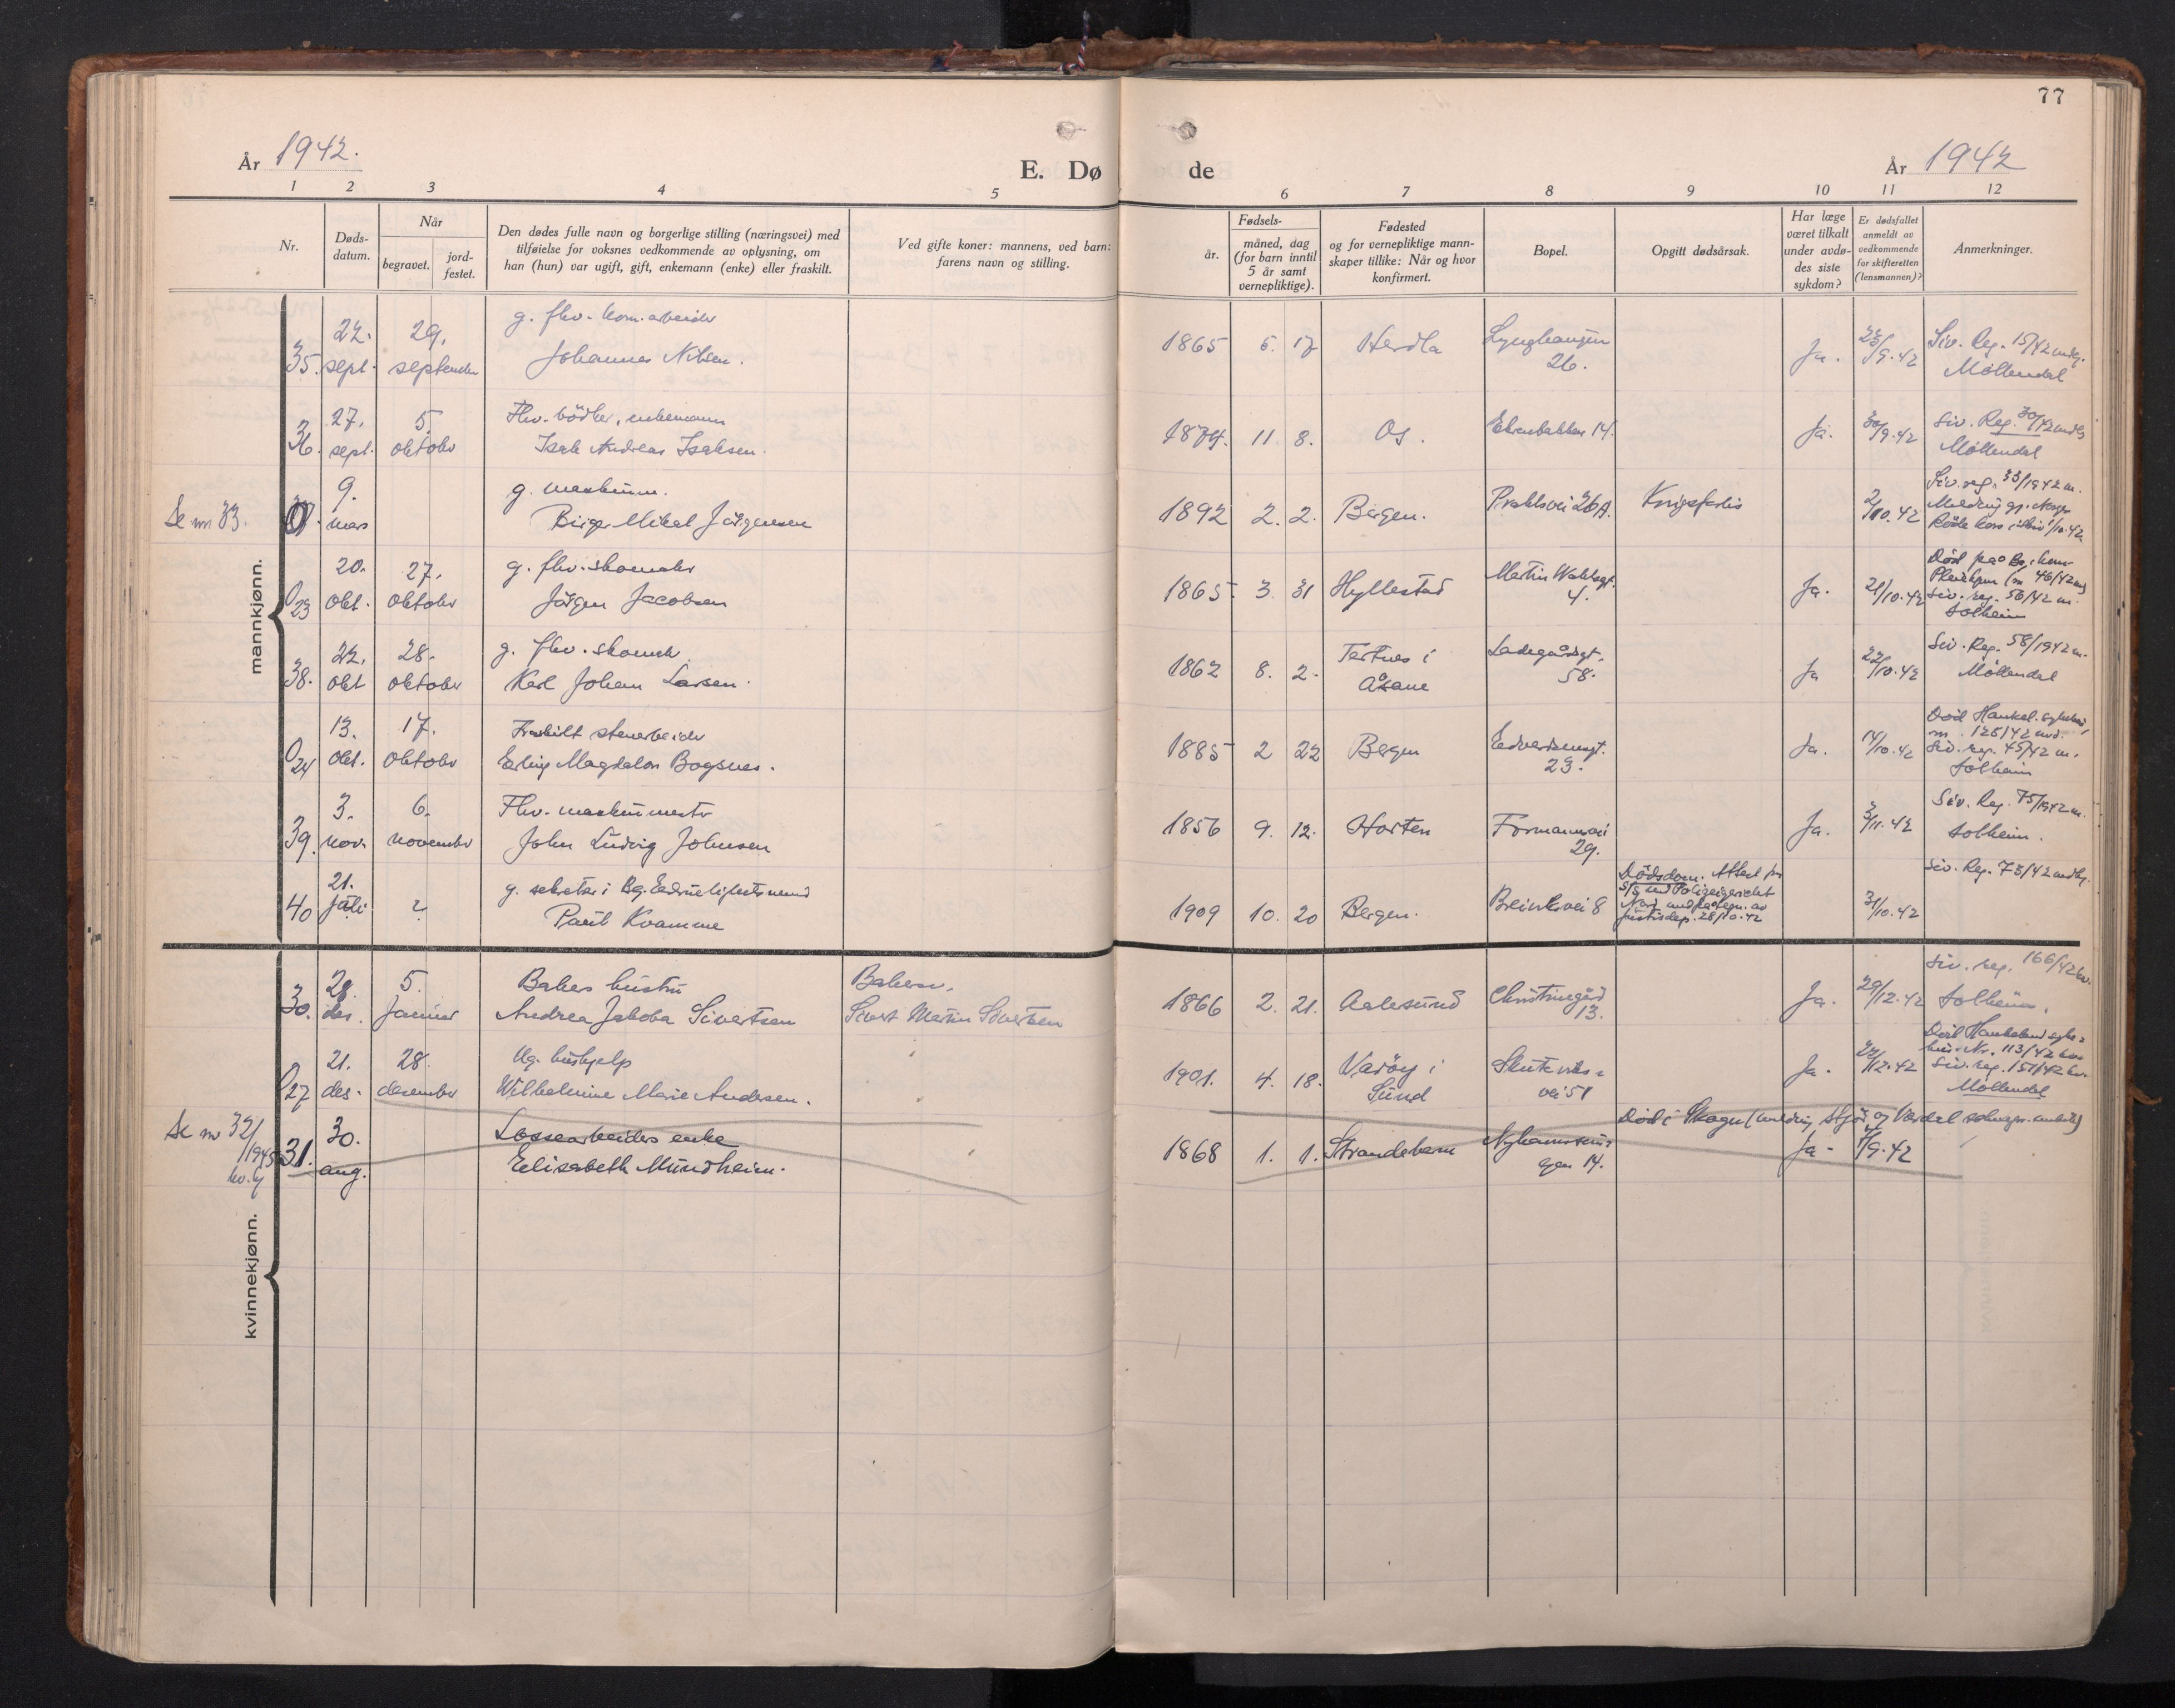 77
År 1942.
E. Dø de
År 1942
1 2 3 4 5 6 7 8 9 10 11 12
Nr.
Døds-
datum.
Når
begravet.
jord-
festet.
Den dødes fulle navn og borgerlige stilling (næringsvei) med
tilføielse for voksnes vedkommende av oplysning, om
han (hun) var ugift, gift, enkemann (enke) eller fraskilt.
Ved gifte koner: mannens, ved barn:
farens navn og stilling.
Fødsels-
år.
måned, dag
(for barn inntil
5 år samt
vernepliktige).
Fødested
og for vernepliktige mann-
skaper tillike: Når og hvor
konfirmert.
Bopel.
Opgitt dødsårsak.
Har læge
været tilkalt
under avdø-
des siste
sykdom?
Er dødsfallet
anmeldt av
vedkommende
for skifteretten
(lensmannen)?
Anmerkninger.
mannkjønn.
35. 22. sept. 29. september
g. fhv. kom.arbeider
Johannes Nilsen.
1865 5. 17 Herdla Lynghaugen 26. Ja. 23/9.42
Siv. Reg. 15/42 mk.
Möllendal
36. 27. sept. 5. oktober
Fhv. bödker, enkemann
Isak Andreas Isaksen.
1874. 11. 8. Os. Ekrebakken 14. Ja. 30/9.42
Siv. Reg. 30/42
Möllendal
Se nr 33.
9. mars
g. maskinm.
Birger Mikal Jörgensen
1892 2. 2. Bergen. Prahlsvei 26A. Krigsforlis 2/10.42
Siv. reg. 33/1942 m.
Melding gj. Norges
Röde Kors 1/10.42
O 23 20. okt. 27. oktober
g. fhv. skomaker
Jörgen Jacobsen
1865 3 31 Hyllestad Martin Wahlsgt. 4. Ja. 21/10.42
Död på
46/42
Siv. reg. 56/42 m.
Solheim
38. 22. okt 28. oktober
g. fhv. skomak.
Karl Johan Larsen.
1862 8. 2. Tertnes i Åsane Ladegårdsgt. 58. Ja 22/10.42
Siv. Reg. 58/1942 m.
Möllendal
O 24 13. okt. 17. oktober
Fraskilt stenarbeider
Erling Magdalon Bogsnes.
1885 2 22 Bergen Edvardsensgt. 23. Ja. 14/10.42
Död Haukel. sykehus,
m. 125/42
Siv. reg. 45/42 m.
Solheim
39. 3. nov. 6. november
Fhv. maskinmester
John Ludvig Johnsen
1856 9. 12. Horten Formannsvei 29. Ja. 3/11.42
Siv. Reg. 75/1942 m.
Solheim.
40 21. juli ?
g. sekretær i Bg.
Paul Kvamme
1909 10. 20 Bergen. Breiviksvei 8
Dödsdom. Attest fra
justisdep. 28/10.42
31/10.42
Siv. Reg. 73/42
kvinnekjønn.
30. 28. des. 5. Januar
Bakers hustru
Andrea Jakoba Sivertsen
Bakersv.
Sivert Martin Sivertsen
1866 2. 21. Aalesund Christinegård 13. Ja. 29/12.42
Siv. reg. 166/42 kv.
Solheim.
O 27 21. des. 28. desember
Ug. hushjelp
Wilhelmine Marie Andersen.
1901. 4. 18. Varöy i Sund Skuteviks-
vei 51 Ja. 22/12.42
Död Haukeland syke-
hus Nr. 113/42 kv.
Siv. reg. 151/42 kv.
Möllendal
Se nr 32/1945
31. 30. aug.
Lossearbeiders enke
Elisabeth Mundheim.
1868 1. 1. Strandebarm 14.
Död i Skogn (melding Stjör og Værdal
Ja- /9.42